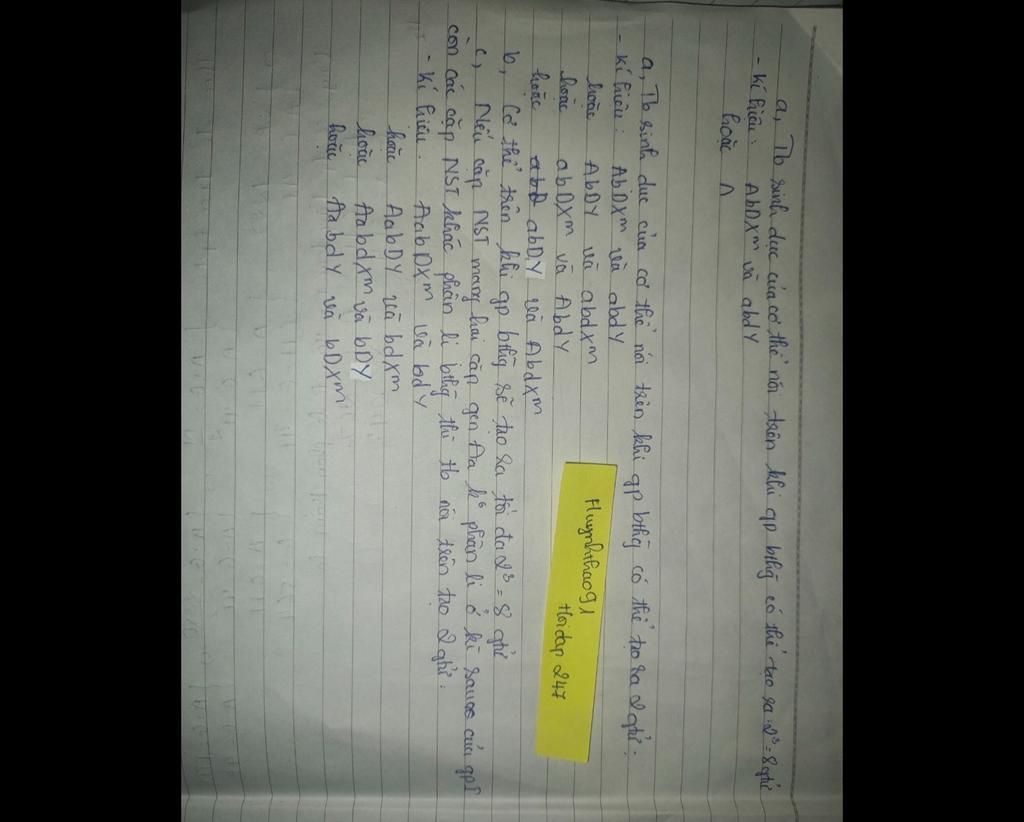 a, Tb sinh dục của cơ thể nói trên khi gp bthg có thể tạo ra 2³ = 8 gtử
- Kí hiệu: AbDXᵐ và abdY
hoặc A
a, Tb sinh dục của cơ thể nói trên khi gp bthg có thể tạo ra 2 gtử.
- Kí hiệu: AbDXᵐ và abdY
hoặc AbDY và abdXᵐ
hoặc abDXᵐ và AbdY
hoặc abD abDY và AbdXᵐ
b, Cơ thể trên khi gp bthg sẽ tạo ra tối đa 2³ = 8 gtử
c, Nếu cặp NST mang hai cặp gen Aa k° phân li ở kì sau của gpI
còn các cặp NST khác phân li bthg thì tb nói trên tạo 2 gtử.
- Kí hiệu. AabDXᵐ và bdY
hoặc AabDY và bdXᵐ
hoặc AabdXᵐ và bDY
hoặc AabdY và bDXᵐ
Huynhthao91
Hoidap 247